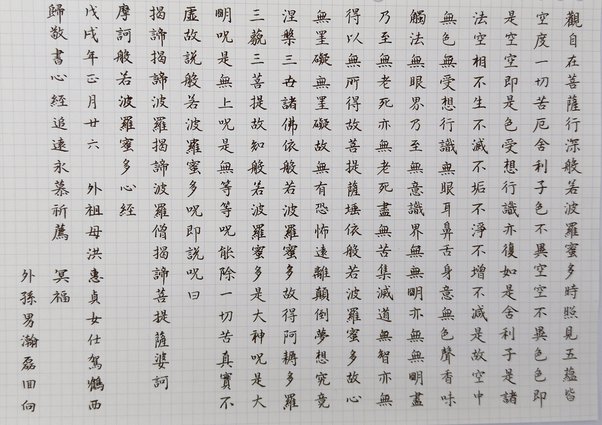 觀自在菩薩行深般若波羅蜜多時照見五蘊皆
空度一切苦厄舍利子色不異空空不異色色即
是空空即是色受想行識亦復如是舍利子是諸
法空相不生不滅不垢不淨不增不減是故空中
無色無受想行識無眼耳鼻舌身意無色聲香味
觸法無眼界乃至無意識界無無明亦無無明盡
乃至無老死亦無老死盡無苦集滅道無智亦無
得以無所得故菩提薩埵依般若波羅蜜多故心
無罣礙無罣礙故無有恐怖遠離顛倒夢想究竟
涅槃三世諸佛依般若波羅蜜多故得阿耨多羅
三藐三菩提故知般若波羅蜜多是大神呪是大
明呪是無上呪是無等等呪能除一切苦真實不
虛故說般若波羅蜜多呪即說呪曰
揭諦揭諦波羅揭諦波羅僧揭諦菩提薩婆訶
摩訶般若波羅蜜多心經
戊戌年正月廿六 外祖母洪惠貞女仕駕鶴西
歸敬書心經追遠永慕祈薦 冥福
外孫男瀚磊回向